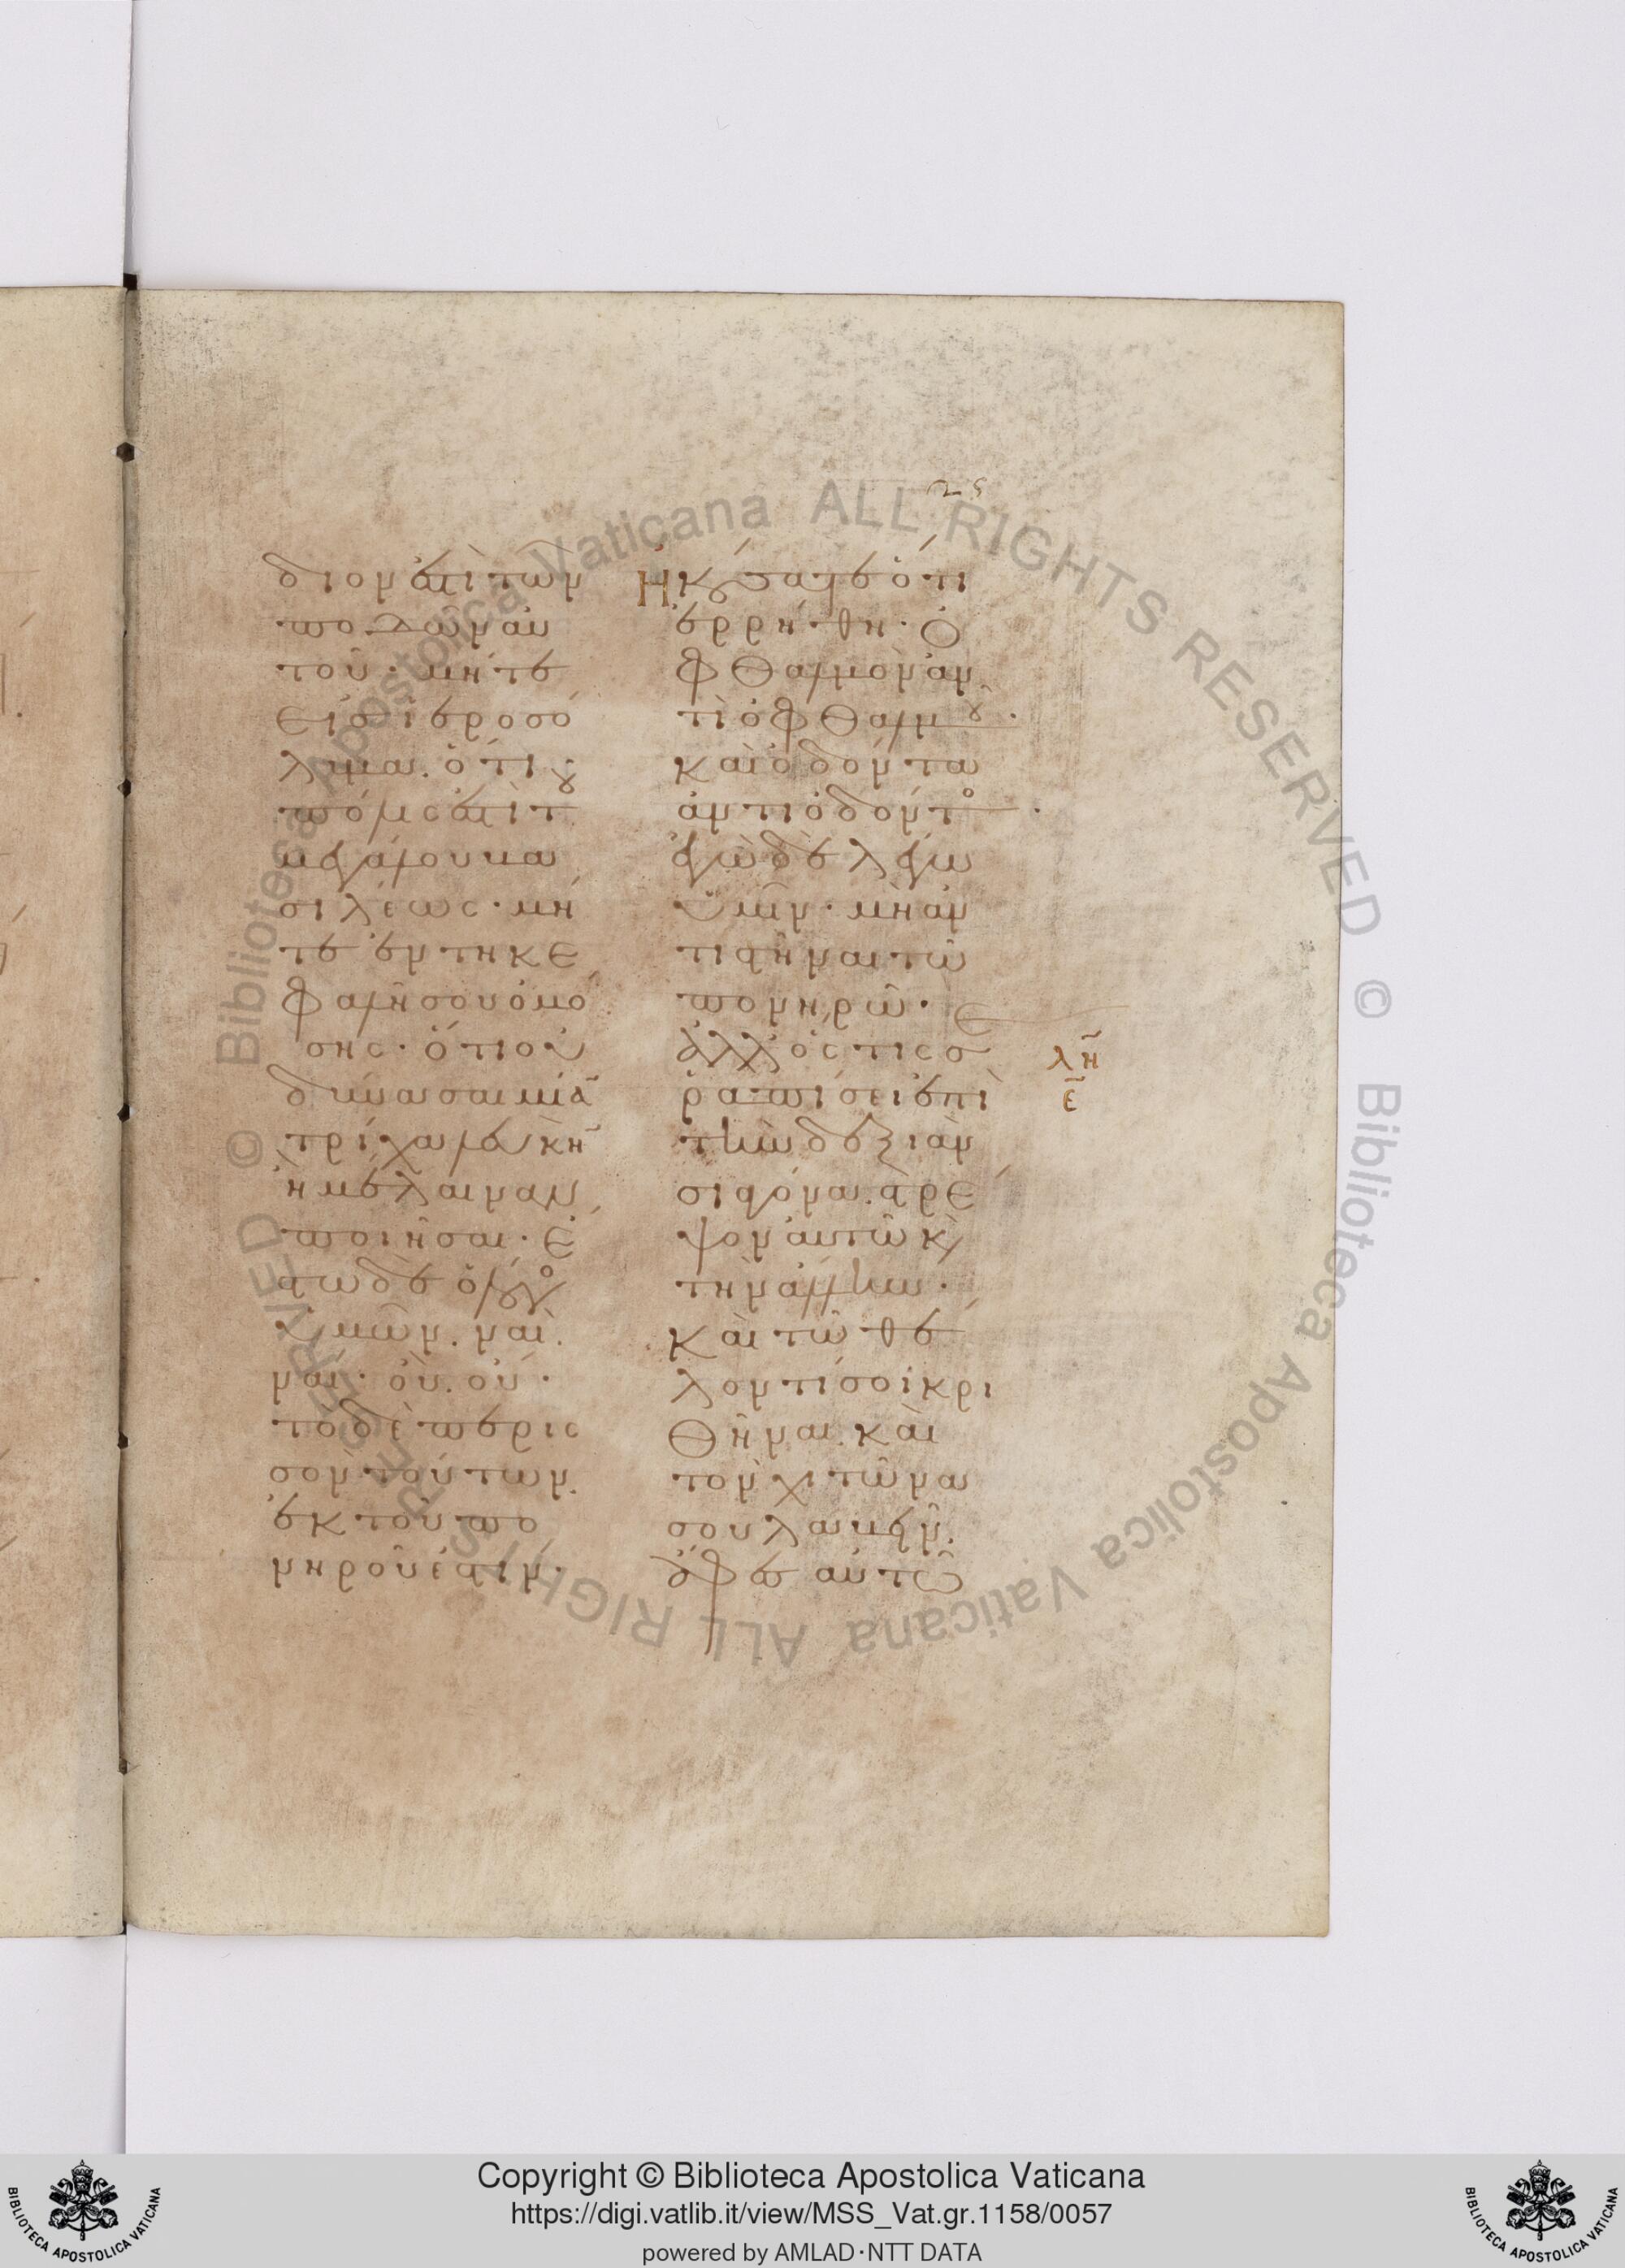 25
διόν ἐστι τῶν
ποδῶν αὐ
τοῦ· μήτε
εἰς ἱεροσό
λυμα· ὅτι
πόλις ἐστὶ τ
μεγάλου βα
σιλέως· μή
τε ἐν τῆ κε
φαλῆ σου ὀμό
σης· ὅτι οὐ
δύνασαι μίαν
τρίχα λευκὴν
ἢ μέλαιναν
ποιῆσαι· ἔ
στω δὲ ὁ λόγος
ὑμῶν· ναὶ
ναί· οὒ οὔ·
τὸ δὲ περισ
σὸν τούτων
ἐκ τοῦ πο
νηροῦ ἐστιν·
Ἠκούσατε ὅτι
ἐρρήθη· ὀ
φθαλμὸν ἀν
τὶ ὀφθαλμοῦ·
καὶ ὀδόντα
ἀντὶ ὀδόντος·
ἐγὼ δὲ λέγω
ὑμῖν· μὴ ἀν
τιστῆναι τῶ
πονηρῶ·
ἀλλ' ὅστις σε
ῥαπίσει ἐπὶ
τὴν δεξιὰν
σιαγόνα· στρέ
ψον αὐτῶ καὶ
τὴν ἄλλην·
καὶ τῶ θέ
λοντί σοι κρι
θῆναι καὶ
τὸν χιτῶνα
σου λαβεῖν·
ἄφες αὐτῶ
λη
ε
Copyright © Biblioteca Apostolica Vaticana
https://digi.vatlib.it/view/MSS_Vat.gr.1158/0057
powered by AMLAD·NTT DATA
BIBLIOTECA APOSTOLICA VATICANA
BIBLIOTECA APOSTOLICA VATICANA
© Biblioteca Apostolica Vaticana ALL RIGHTS RESERVED © Biblioteca Apostolica Vaticana ALL RIGHTS RESERVED